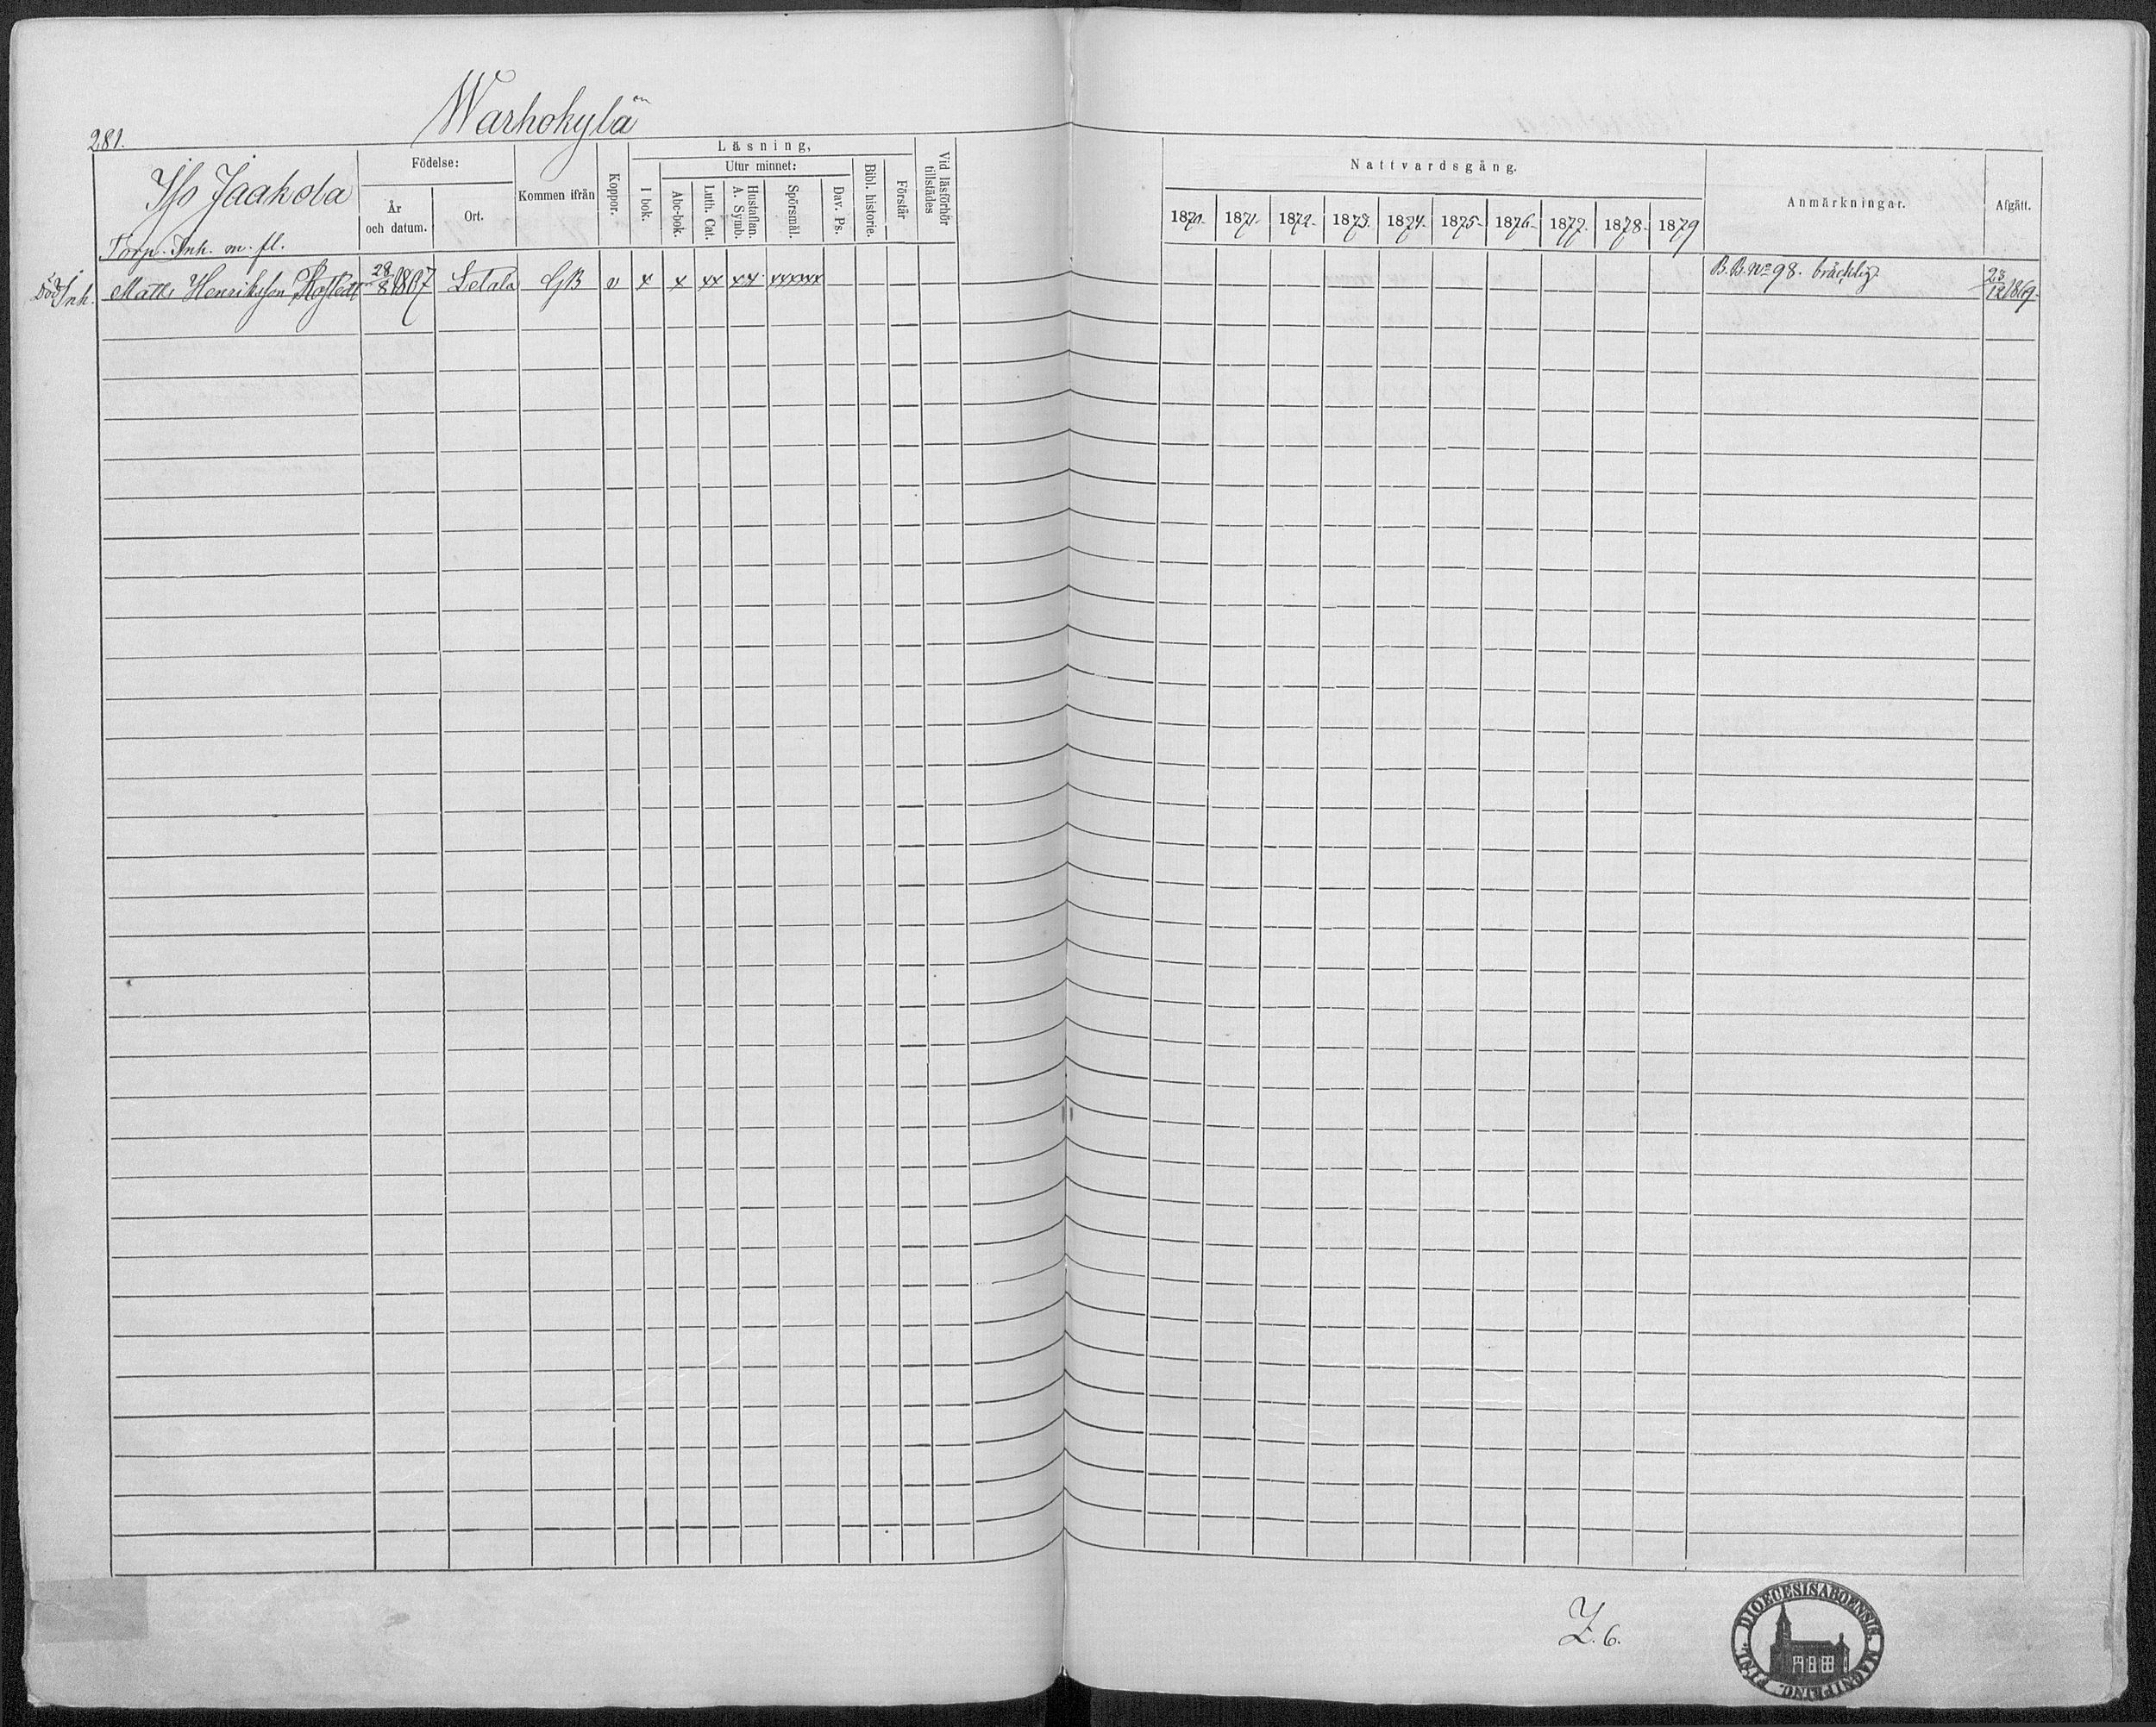 Warhokylä
281.
Iso Jaakola
Torp. Inh. m. fl.
Födelse:
År och datum.
Ort.
Kommen ifrån
Koppor.
Läsning,
I bok.
Utur minnet:
Abc-bok.
Luth. Cat.
Hustaflan. A. Symb.
Spörsmål.
Dav. Ps.
Bibl. historie.
Förstår
Vid läsförhör tillstädes
Nattvardsgång.
1870. 1871. 1872. 1873. 1874. 1875. 1876. 1877. 1878. 1879
Anmärkningar.
Afgått.
Död Inh. Matts Henriksson 28/8 1807 Letala GB v x x xx xx xxxxx B.B. No 98. bräcklig. 23/12 1869.
Z. 6.
SIGILL. DIOECESISABOENSIS. MAGNI PRINC. FINL.